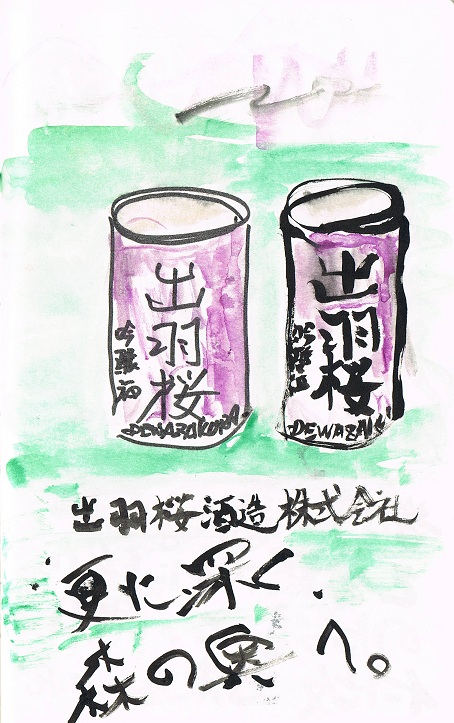 出羽桜
吟醸
DEWAZAKURA
出羽桜
吟醸
DEWAZAKU
出羽桜酒造株式会社
更に深く、
森の奥へ。